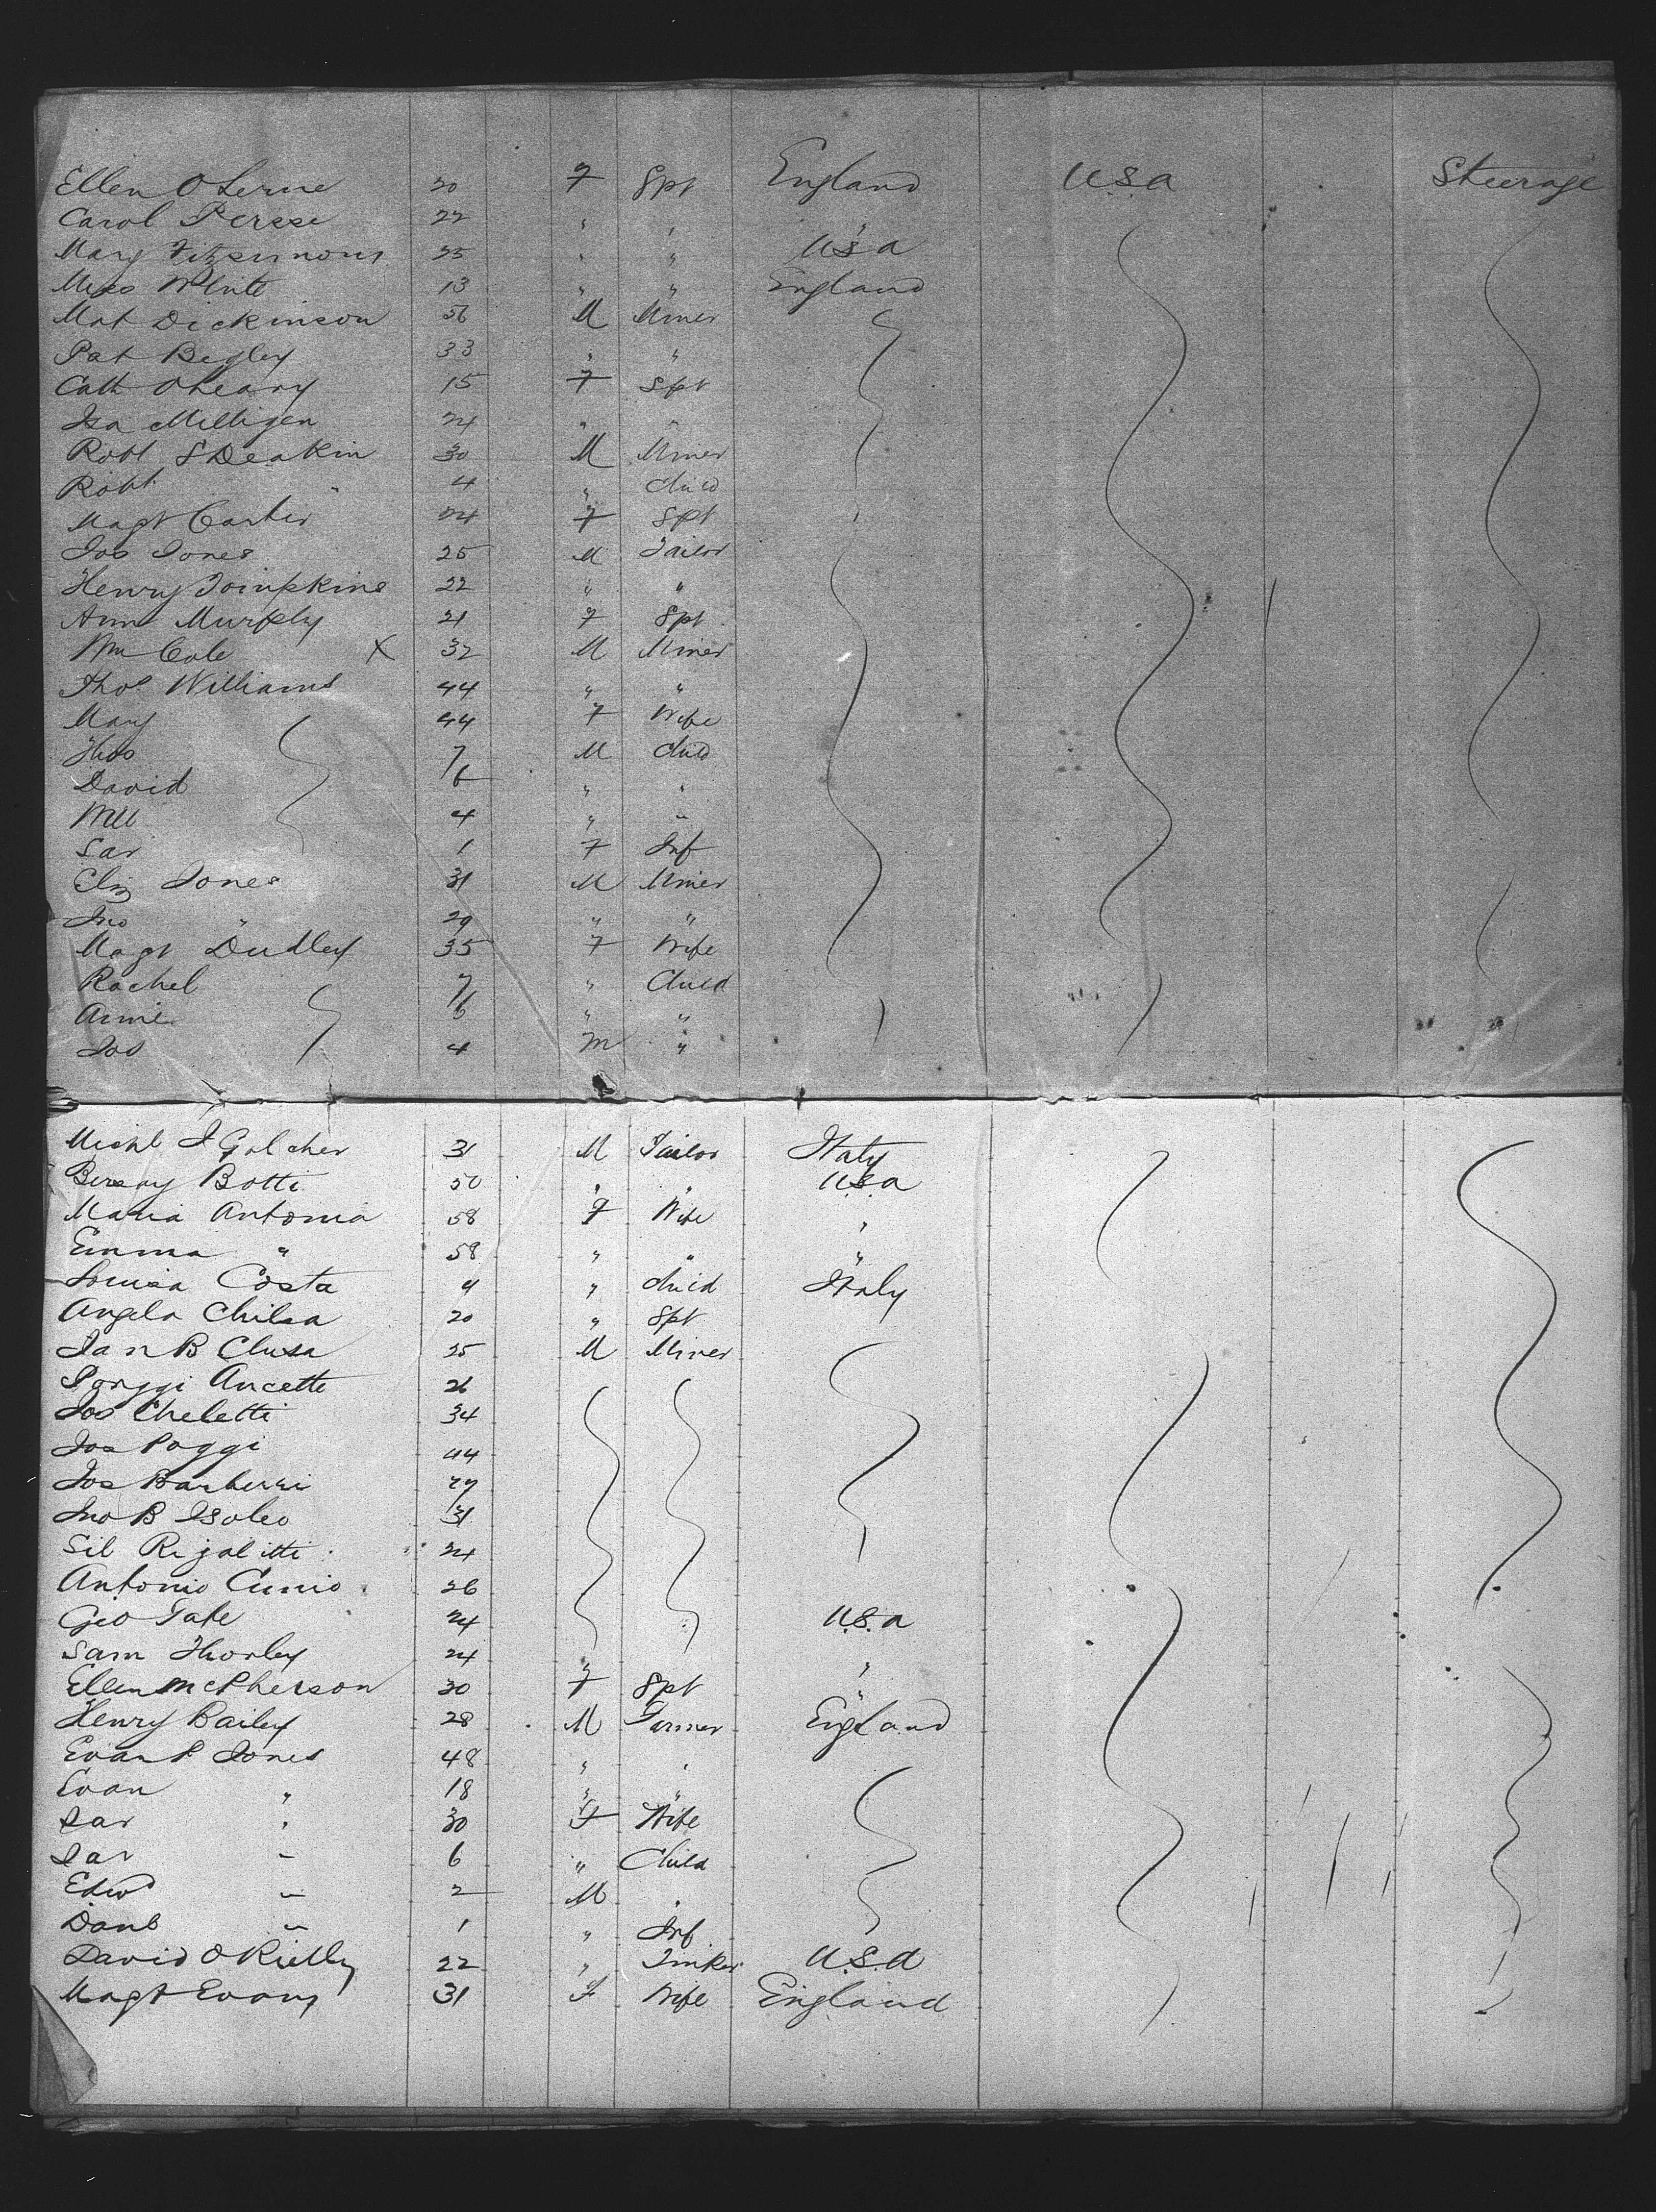 Ellen O 20 F Spt England U.S.a Steerage
Carol Persse 22 " " "
Mary Fitzsimons 25 " " U.S.a
Miss White 13 " " England
Mat Dickinson 56 M Miner
Pat Begley 33 " "
Cath O Leary 15 F Spt
Isa Milligen 24 " "
Robt S Deakin 30 M Miner
Robt " 4 " Child
Magt Carter 24 F Spt
Jos Jones 25 M Tailor
Henry Toimpkins 22 " "
Ann Murphy 21 F Spt
Wm Cole X 32 M Miner
Thos Williams 44 " "
Mary 44 F Wife
Thos 7 M Child
David 6 " "
Will 4 " "
Sar 1 F Inf
Eliz Jones 31 M Miner
Jno " 29 " "
Magt Dudley 35 F Wife
Rachel 7 " Child
Annie 6 " "
Jos 4 M "
Michl J Golcher 31 M Tailor Italy
Botti 50 " " U.S.a
Maria Antonia 58 F Wife "
Emma " 58 " " "
Louisa Costa 4 " Child Italy
Angela Chilsa 20 " Spt
Jan B Clusa 25 M Miner
Poggi Ancette 26
Jos Cheletti 34
Jos Poggi 44
Jos Barberri 27
Jno B Isoleo 31
Sil Rigalitti 24
Antonio Cunio 26
Geo Tate 24 U.S.a
Sam Thorley 24 " "
Ellen McPherson 30 F Spt "
Henry Bailey 28 M Farmer England
Evan P Jones 48 " "
Evan " 18 " "
Sar " 30 F Wife
Sar " 6 " Child
Edwd " 2 M "
Danl " 1 " Inf
David O Rielly 22 " Tinker U.S.a
Magt Evans 31 F Wife England